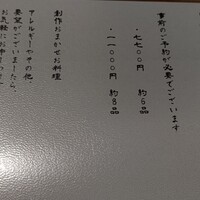 事前のご予約が必要でございます
・七七〇〇円 約5品
・一一〇〇〇円 約8品
創作おまかせお料理
アレルギーやその他、
要望がございましたら、
お気軽にお申